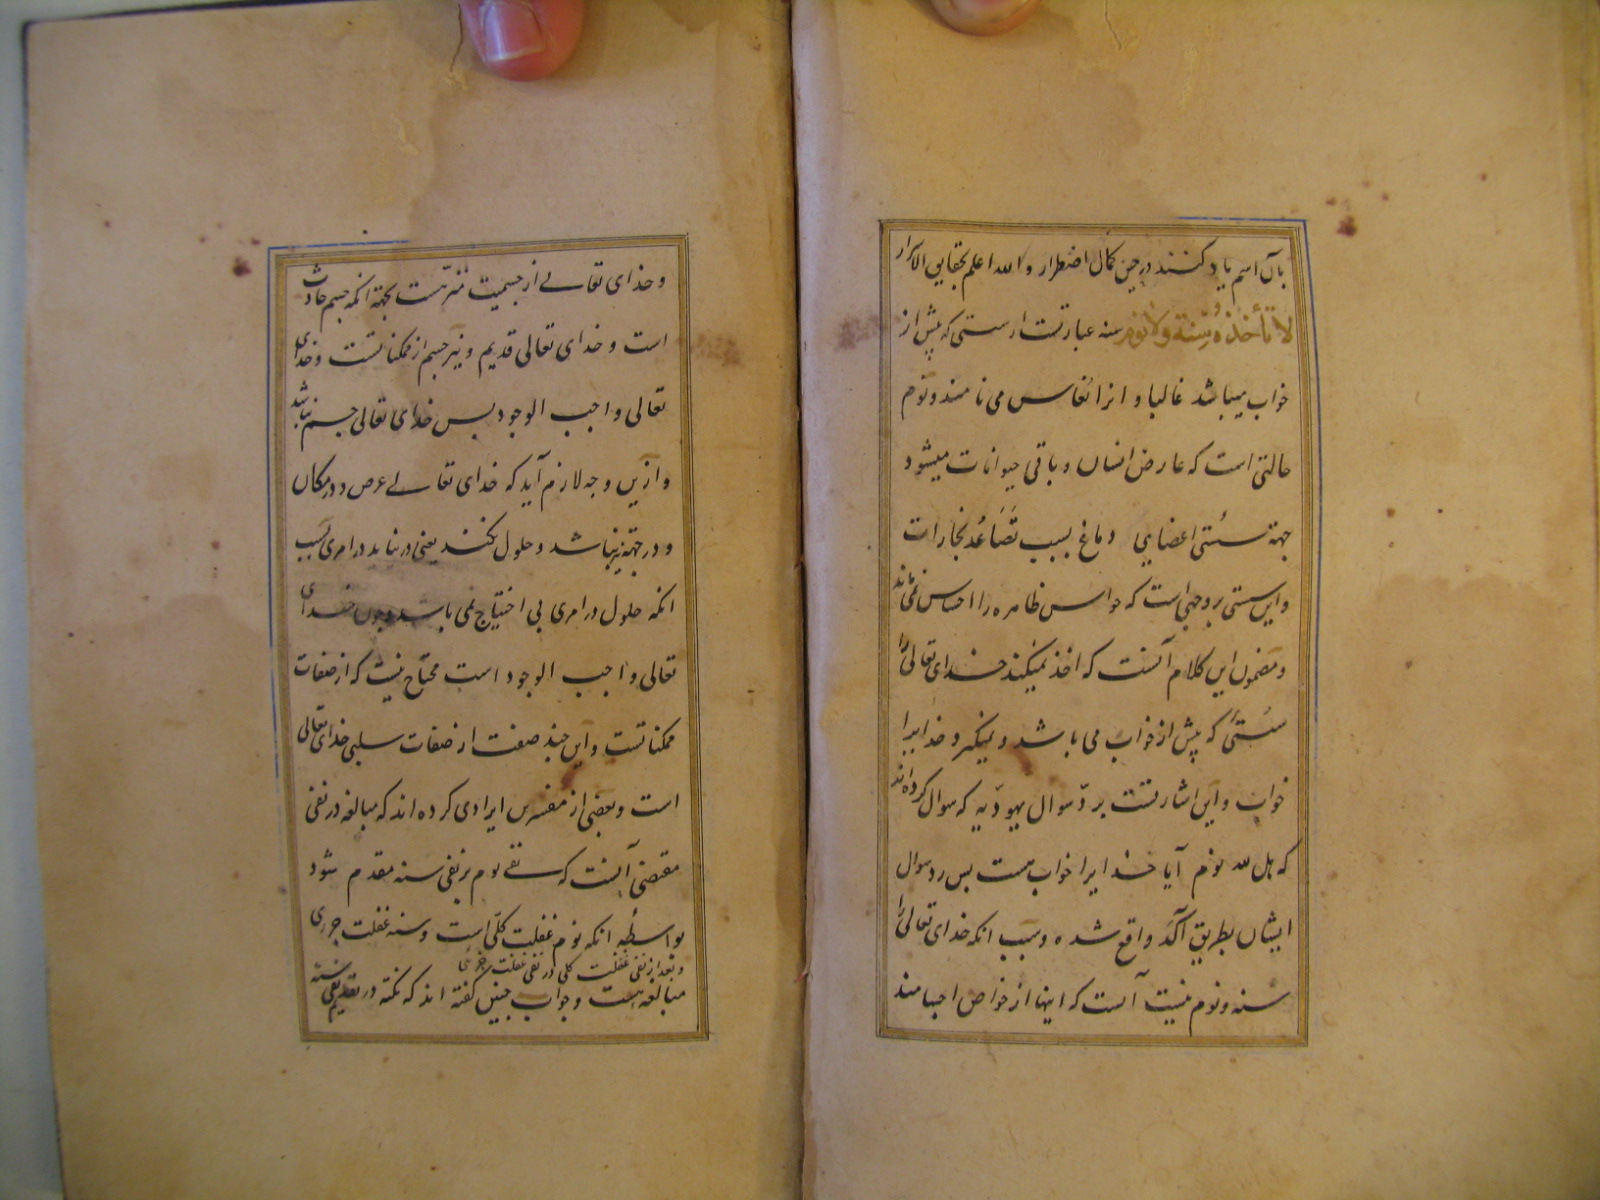 بآن اسم یاد کنند در حین کمال اضطرار والله اعلم بحقایق الاسرار
لا تأخذه سنة ولا نوم سنه عبارتست از سستی که پیش از
خواب میباشد غالبا و انرا نعاس می نامند و نوم
حالتی است که عارض انسان و باقی حیوانات میشود
جهة سستی اعضایی دماغ بسبب تصاعد بخارات
و این سستی بر وجهی است که حواس ظاهره را احساس نماند
و مضمون این کلام آنست که اخذ نمیکند خدای تعالی را
سستی که پیش از خواب می باشد و نمیگیرد خدایرا
خواب و این اشارتست برد سوال یهودیه که سوال کرده اند
که هل لله نوم آیا خدایرا خواب هست پس رد سوال
ایشان بطریق آکد واقع شده و سبب انکه خدای تعالی را
سنه و نوم نیست آنست که اینها از خواص اجسامند
و خدای تعالی از جسمیت منزهست بجهة انکه جسم حادث
است و خدای تعالی قدیم و نیز جسم از ممکناتست و خدای
تعالی واجب الوجود پس خدای تعالی جسم نباشد
و ازین وجه لازم آید که خدای تعالی عرض و در مکان
و در جهة نیز نباشد و حلول نکند یعنی در نیاید در امری بسبب
انکه حلول در امری بی احتیاج نمی باشد و چون خدای
تعالی واجب الوجود است محتاج نیست که از صفات
ممکناتست و این چند صفت از صفات سلبی خدای تعالی
است و بعضی از مفسرین ایرادی کرده اند که مبالغه در نفی
مقتضی آنست که نفی نوم بر نفی سنه مقدم شود
بواسطه انکه نوم غفلت کلی است و سنه غفلت جزوی
و بعد از نفی غفلت کلی در نفی غفلت جزوی
مبالغه هست و جواب چنین گفته اند که نکته در تقدیم نفی سنه